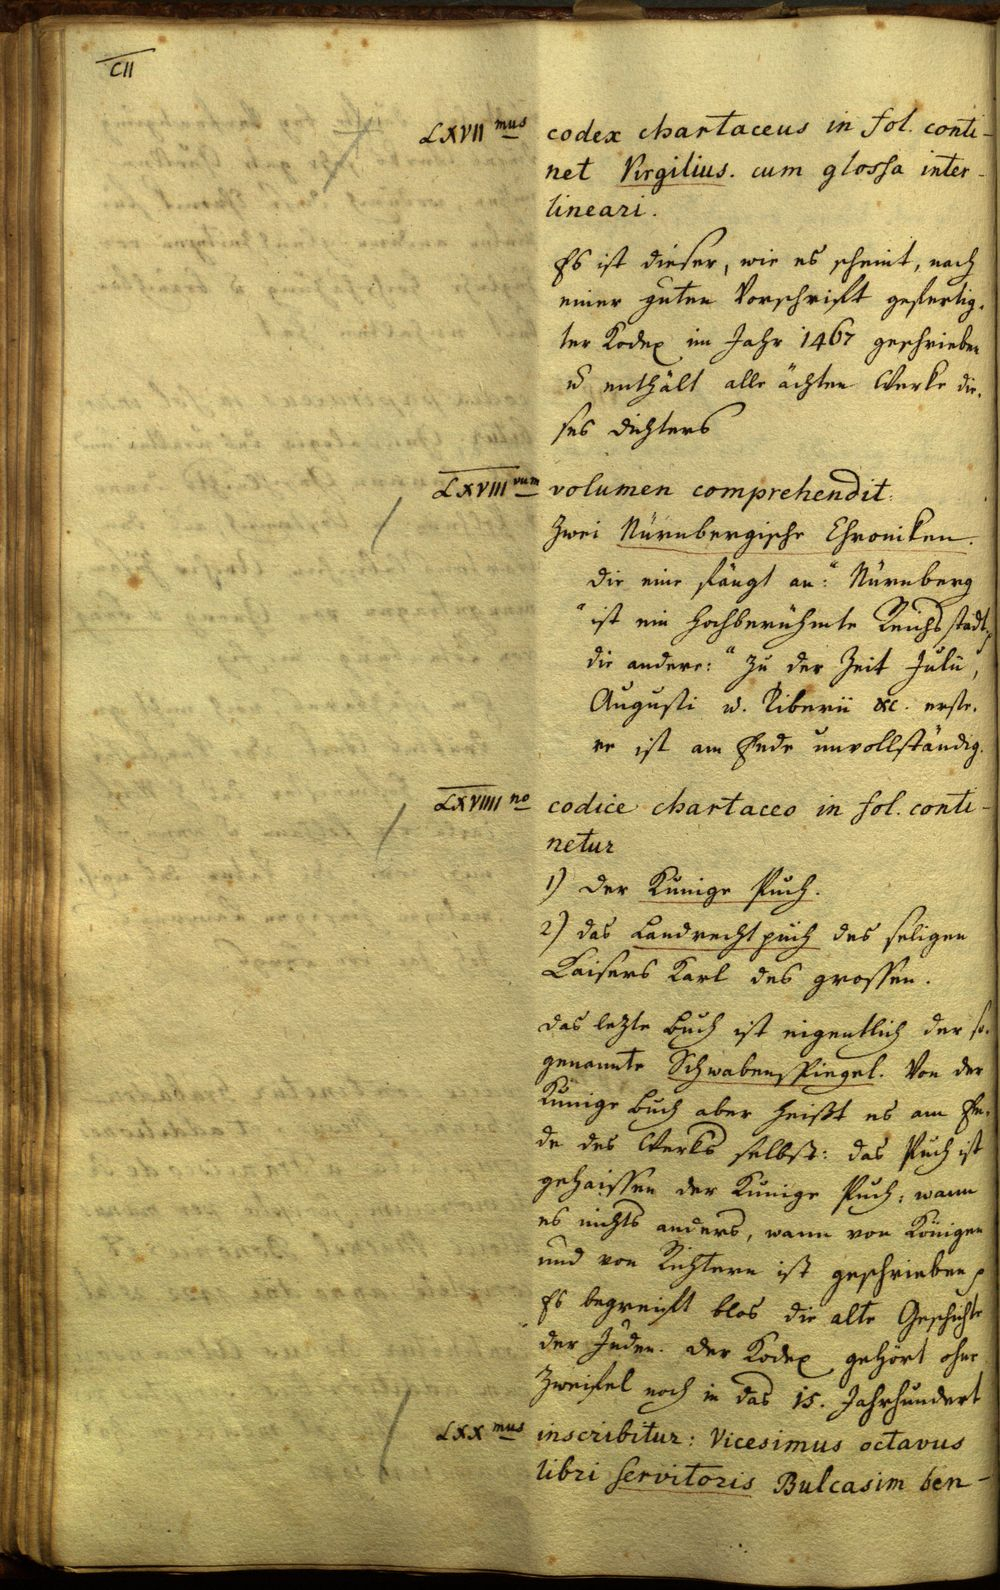 CII
LXVII mus codex chartaceus in fol. conti-
net Virgilius. cum glossa inter-
lineari.
Es ist dieser, wie es scheint, nach
einer guten Vorschrift gefertig-
ter Kodex im Jahr 1467 geschrieben
u enthält alle ächten Werke die-
ses Dichters
LXVIII vum volumen comprehendit:
Zwei Nürnbergische Chroniken.
die eine fängt an: "Nürnberg
"ist ein hochberühmte Reichsstadt,
die andere: "Zu der Zeit Julii,
Augusti u. Tiberii &c. erste-
re ist am Ende unvollständig.
LXVIIII no codice chartaceo in fol. conti-
netur
1) Der Künige Puch.
2) das Landrechtpuch des seligen
Kaisers Karl des grossen.
Das lezte Buch ist eigentlich der so-
genannte Schwabenspiegel. Von der
Künige Buch aber heißt es am En-
de des Werks selbst: das Puch ist
gehaissen der Künige Puch; wann
es nichts anders, wann von Königen
und von Richtern ist geschrieben
Es begreift blos die alte Geschichte
der Juden. Der Kodex gehört ohne
Zweifel noch in das 15. Jahrhundert
LXX mus inscribitur: Vicesimus octavus
libri servitoris Bulcasim ben-